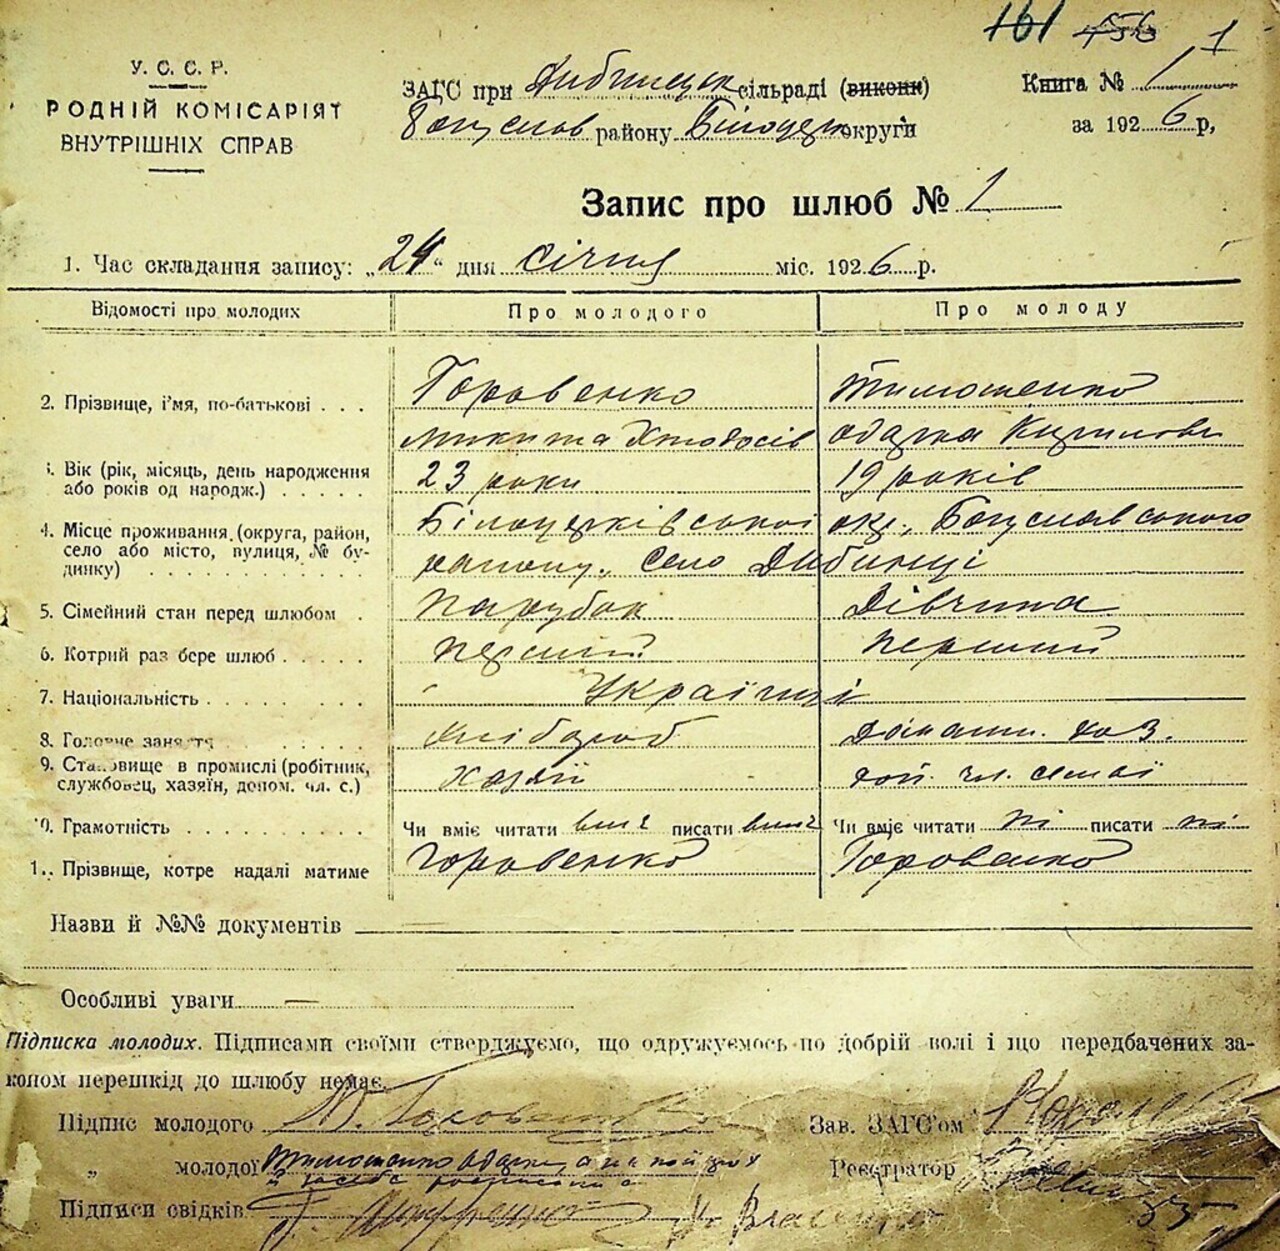 161 156 1
У. С. С. Р.
РОДНІЙ КОМІСАРІЯТ
ВНУТРІШНІХ СПРАВ
ЗАГС при Дибинецьк сільраді (викони)
Богуслав району Білоцерк округи
Книга № 1
за 1926 р,
Запис про шлюб № 1
1. Час складання запису: „24“ дня січня міс. 1926 р.
Відомості про молодих Про молодого Про молоду
2. Прізвище, і’мя, по-батькові . . . Горовенко Тимошенко
Микита Хтодосів Одарка Кирилови
3. Вік (рік, місяць, день народження 23 роки 19 років
або років од народж.) . . . . .
4. Місце проживання (округа, район, Білоцерківської окр., Богуславського
село або місто, вулиця, № бу-
динку) . . . . . . . . . . . . району., село Дибинці
5. Сімейний стан перед шлюбом . Парубок Дівчина
6. Котрий раз бере шлюб . . . . . перший перший
7. Національність . . . . . . . . . Українці
8. Головне заняття . . . . . . . хлібороб домашн. хоз.
9. Становище в промислі (робітник, хазяїн чл. сем'ї
службовец, хазяїн, допом. чл. с.)
10. Грамотність . . . . . . . . . . Чи вміє читати вміє писати вміє Чи вміє читати ні писати ні
11. Прізвище, котре надалі матиме Горовенко Горовенко
Назви й №№ документів
Особливі уваги —
Підписка молодих. Підписами своїми стверджуємо, що одружуємось по добрій волі і що передбачених за-
коном перешкід до шлюбу немає.
Підпис молодого М. Горовенко Зав. ЗАГС'ом
„ молодої Тимошенко Одарка Реєстратор
Підписи свідків. Власенко